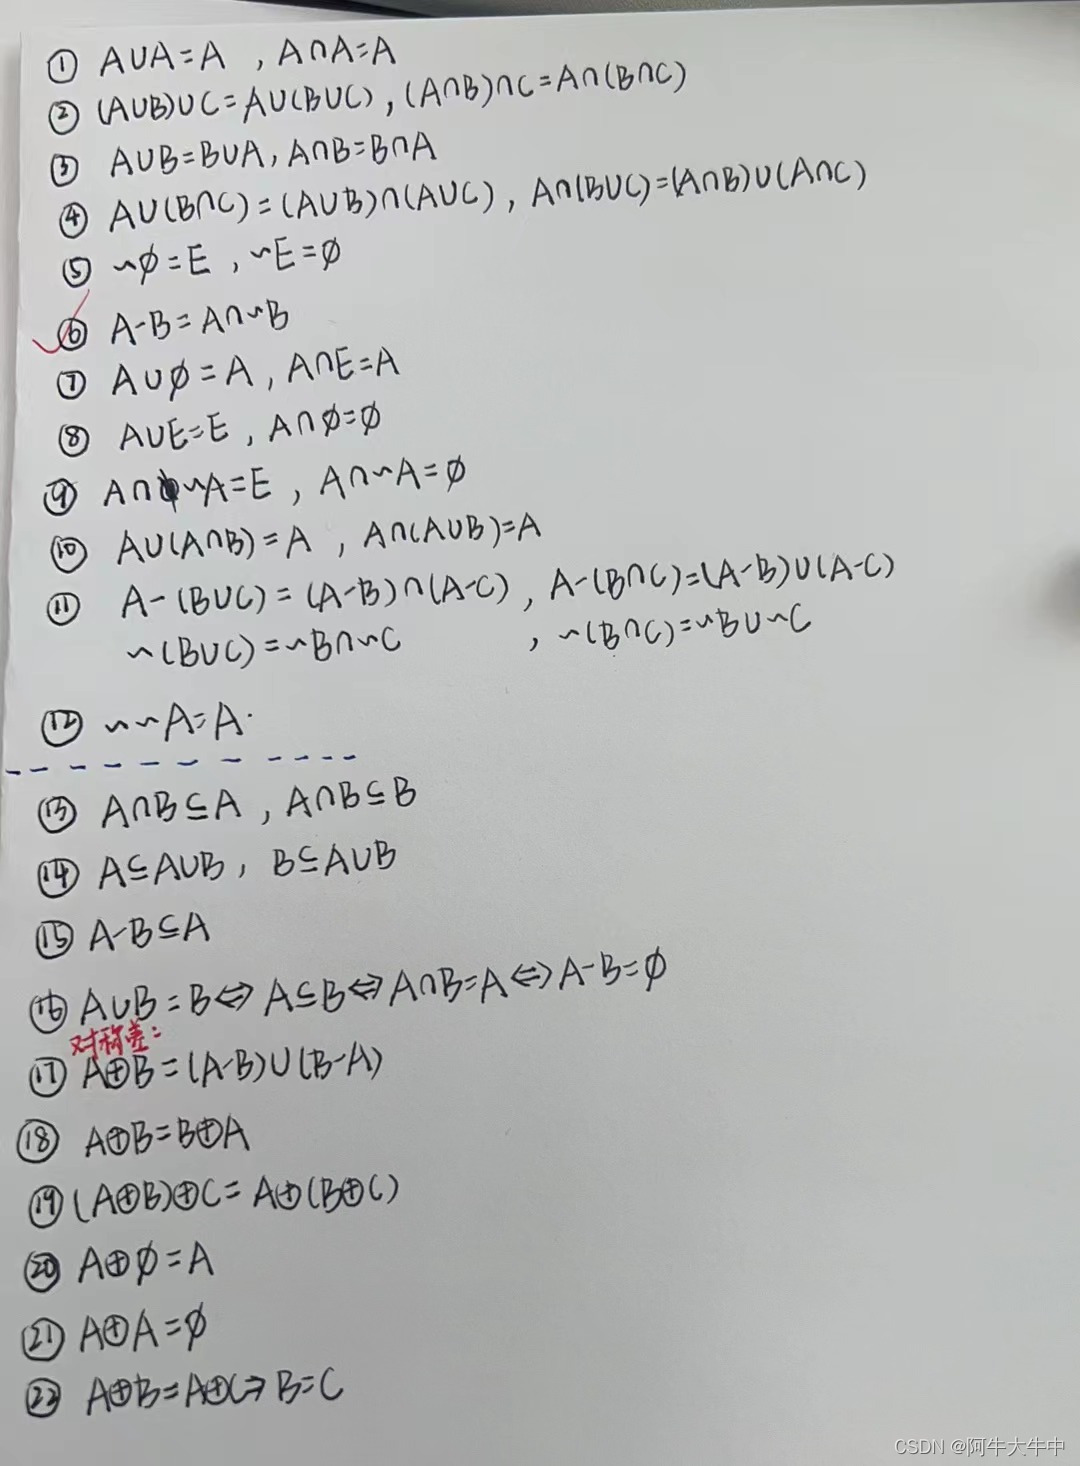 ① A∪A=A , A∩A=A
② (A∪B)∪C=A∪(B∪C) , (A∩B)∩C=A∩(B∩C)
③ A∪B=B∪A, A∩B=B∩A
④ A∪(B∩C)=(A∪B)∩(A∪C) , A∩(B∪C)=(A∩B)∪(A∩C)
⑤ ~∅=E , ~E=∅
⑥ A-B=A∩~B
⑦ A∪∅=A , A∩E=A
⑧ A∪E=E , A∩∅=∅
⑨ A∩~A=E , A∩~A=∅
⑩ A∪(A∩B)=A , A∩(A∪B)=A
⑪ A-(B∪C)=(A-B)∩(A-C) , A-(B∩C)=(A-B)∪(A-C)
~(B∪C)=~B∩~C , ~(B∩C)=~B∪~C
⑫ ~~A=A.
⑬ A∩B⊆A , A∩B⊆B
⑭ A⊆A∪B , B⊆A∪B
⑮ A-B⊆A
⑯ A∪B=B⇔A⊆B⇔A∩B=A⇔A-B=∅
对称差:
⑰ A⊕B=(A-B)∪(B-A)
⑱ A⊕B=B⊕A
⑲ (A⊕B)⊕C=A⊕(B⊕C)
⑳ A⊕∅=A
㉑ A⊕A=∅
㉒ A⊕B=A⊕C⇒B=C
CSDN @阿牛大牛中